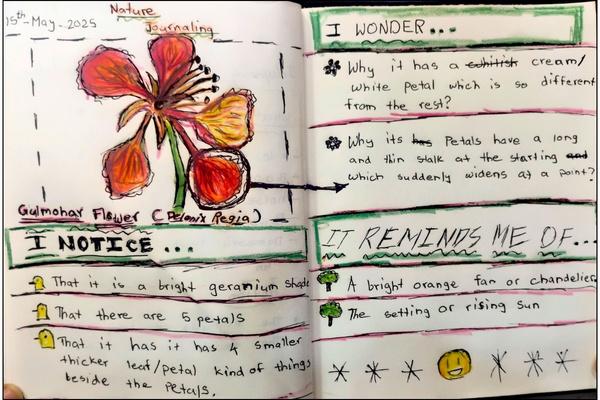 15th-May-2025
Nature
Journaling
Gulmohar Flower (Delonix Regia)
I NOTICE...
That it is a bright geranium shade
That there are 5 petals
That it has it has 4 smaller
thicker leaf/petal kind of things
beside the petals.
I WONDER...
Why it has a whitish cream/
white petal which is so different
from the rest?
Why its has Petals have a long
and thin stalk at the starting and
which suddenly widens at a point?
IT REMINDS ME OF...
A bright orange fan or chandelier
The setting or rising sun